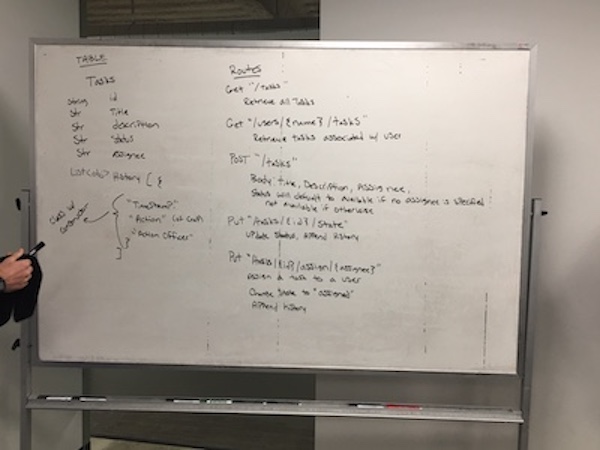 TABLE
Tasks
String id
Str Title
Str description
Str Status
Str Assignee
History [ {
"TimeStamp":
"Action"
"Action Officer"
}
]
Routes
Get "/tasks"
Retrieve all Tasks
Get "/users/{name}/tasks"
Retrieve tasks associated w/ user
POST "/tasks"
Body: title, Description, Assignee,
Status will default to Available if no assignee is specified
not available if otherwise
Put "/tasks/{id}/state"
Update status, Append History
Put "/tasks/{id}/assign/{assignee}"
Assign a task to a user
Change State to "assigned"
Append history